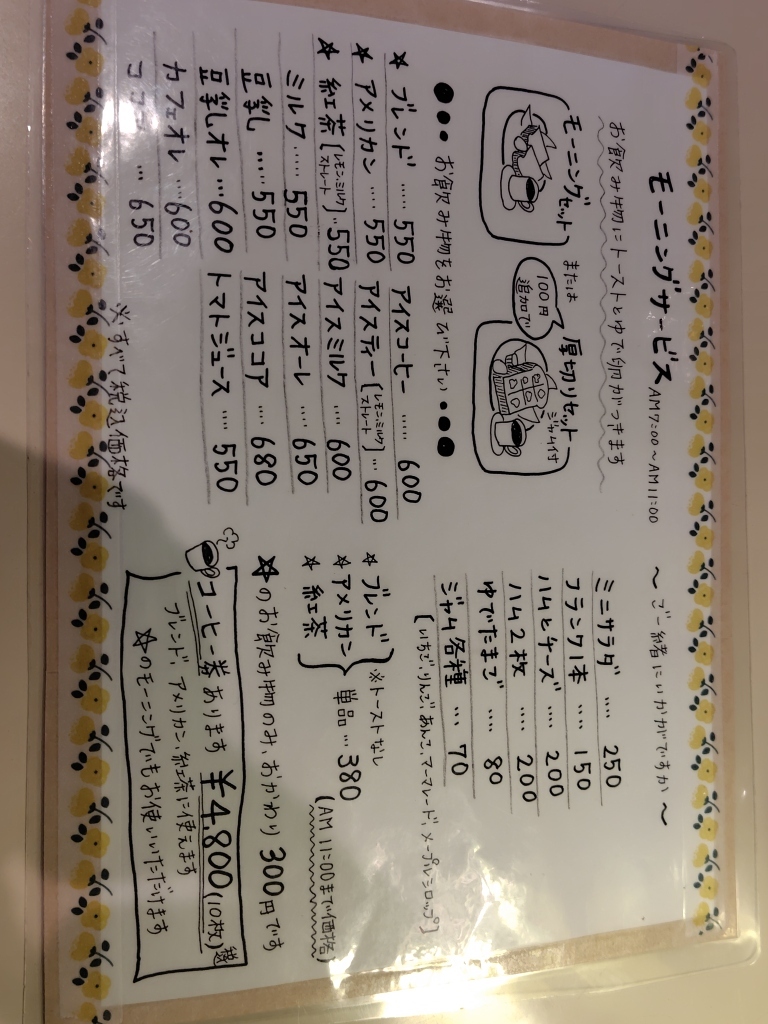 モーニングサービス AM7:00〜AM11:00
お飲み物にトーストとゆで卵がつきます
モーニングセット
または
100円
追加で
厚切りセット
ジャム付
●●● お飲み物をお選び下さい ●●●
☆ ブレンド …… 550
☆ アメリカン …… 550
☆ 紅茶 [レモン、ミルク ストレート] … 550
ミルク …… 550
豆乳 …… 550
豆乳オレ … 600
カフェオレ …… 600
ココア … 650
アイスコーヒー …… 600
アイスティー [レモン、ミルク ストレート] … 600
アイスミルク …… 600
アイスオーレ …… 650
アイスココア …… 680
トマトジュース …… 550
※すべて税込価格です
〜 ご一緒にいかがですか 〜
ミニサラダ …… 250
フランク1本 …… 150
ハムとチーズ …… 200
ハム2枚 …… 200
ゆでたまご …… 80
ジャム各種 …… 70
[いちご、りんご、あんこ、マーマレード、メープルシロップ]
※トーストなし
☆ ブレンド
☆ アメリカン
☆ 紅茶
単品 … 380
(AM 11:00まで価格)
☆のお飲み物のみ、おかわり 300円です
コーヒー券あります ¥4,800(10枚)税込
ブレンド、アメリカン、紅茶に使えます
☆のモーニングでもお使いいただけます